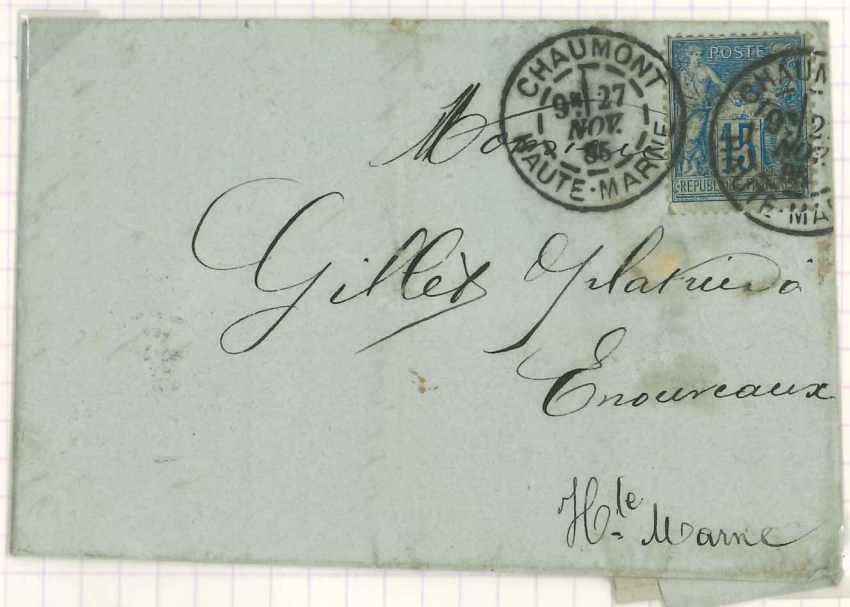 CHAUMONT
9E 27
NOV.
85
HAUTE-MARNE
POSTE
15
REPUBLIQUE FRANÇAISE
CHAUM
2
TE-MA
Monsieur
Gillet Platrier à
Enoureaux
Hte Marne